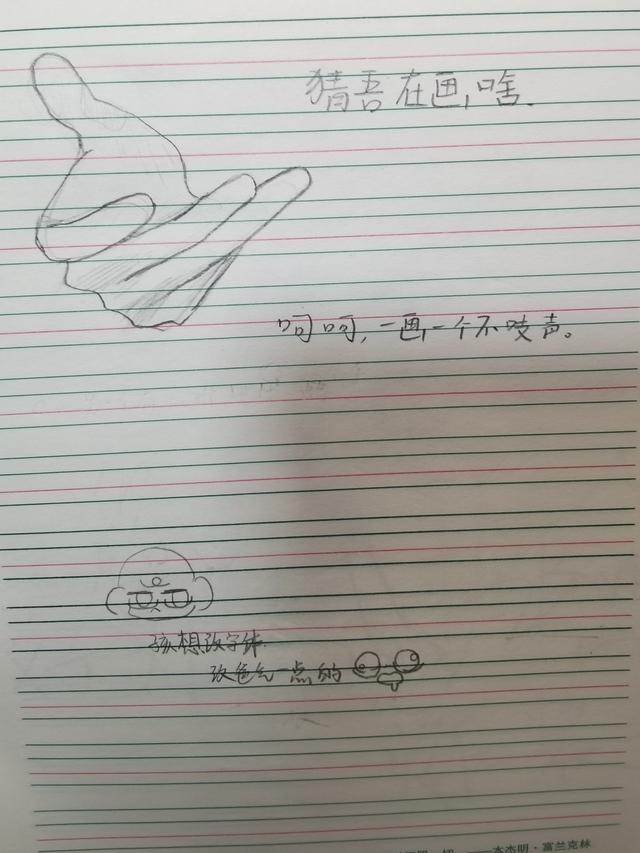 猜吾在画,啥.
呵呵,一画,一个不吱声。
孩想改字体.
改色气一点的
——本杰明·富兰克林